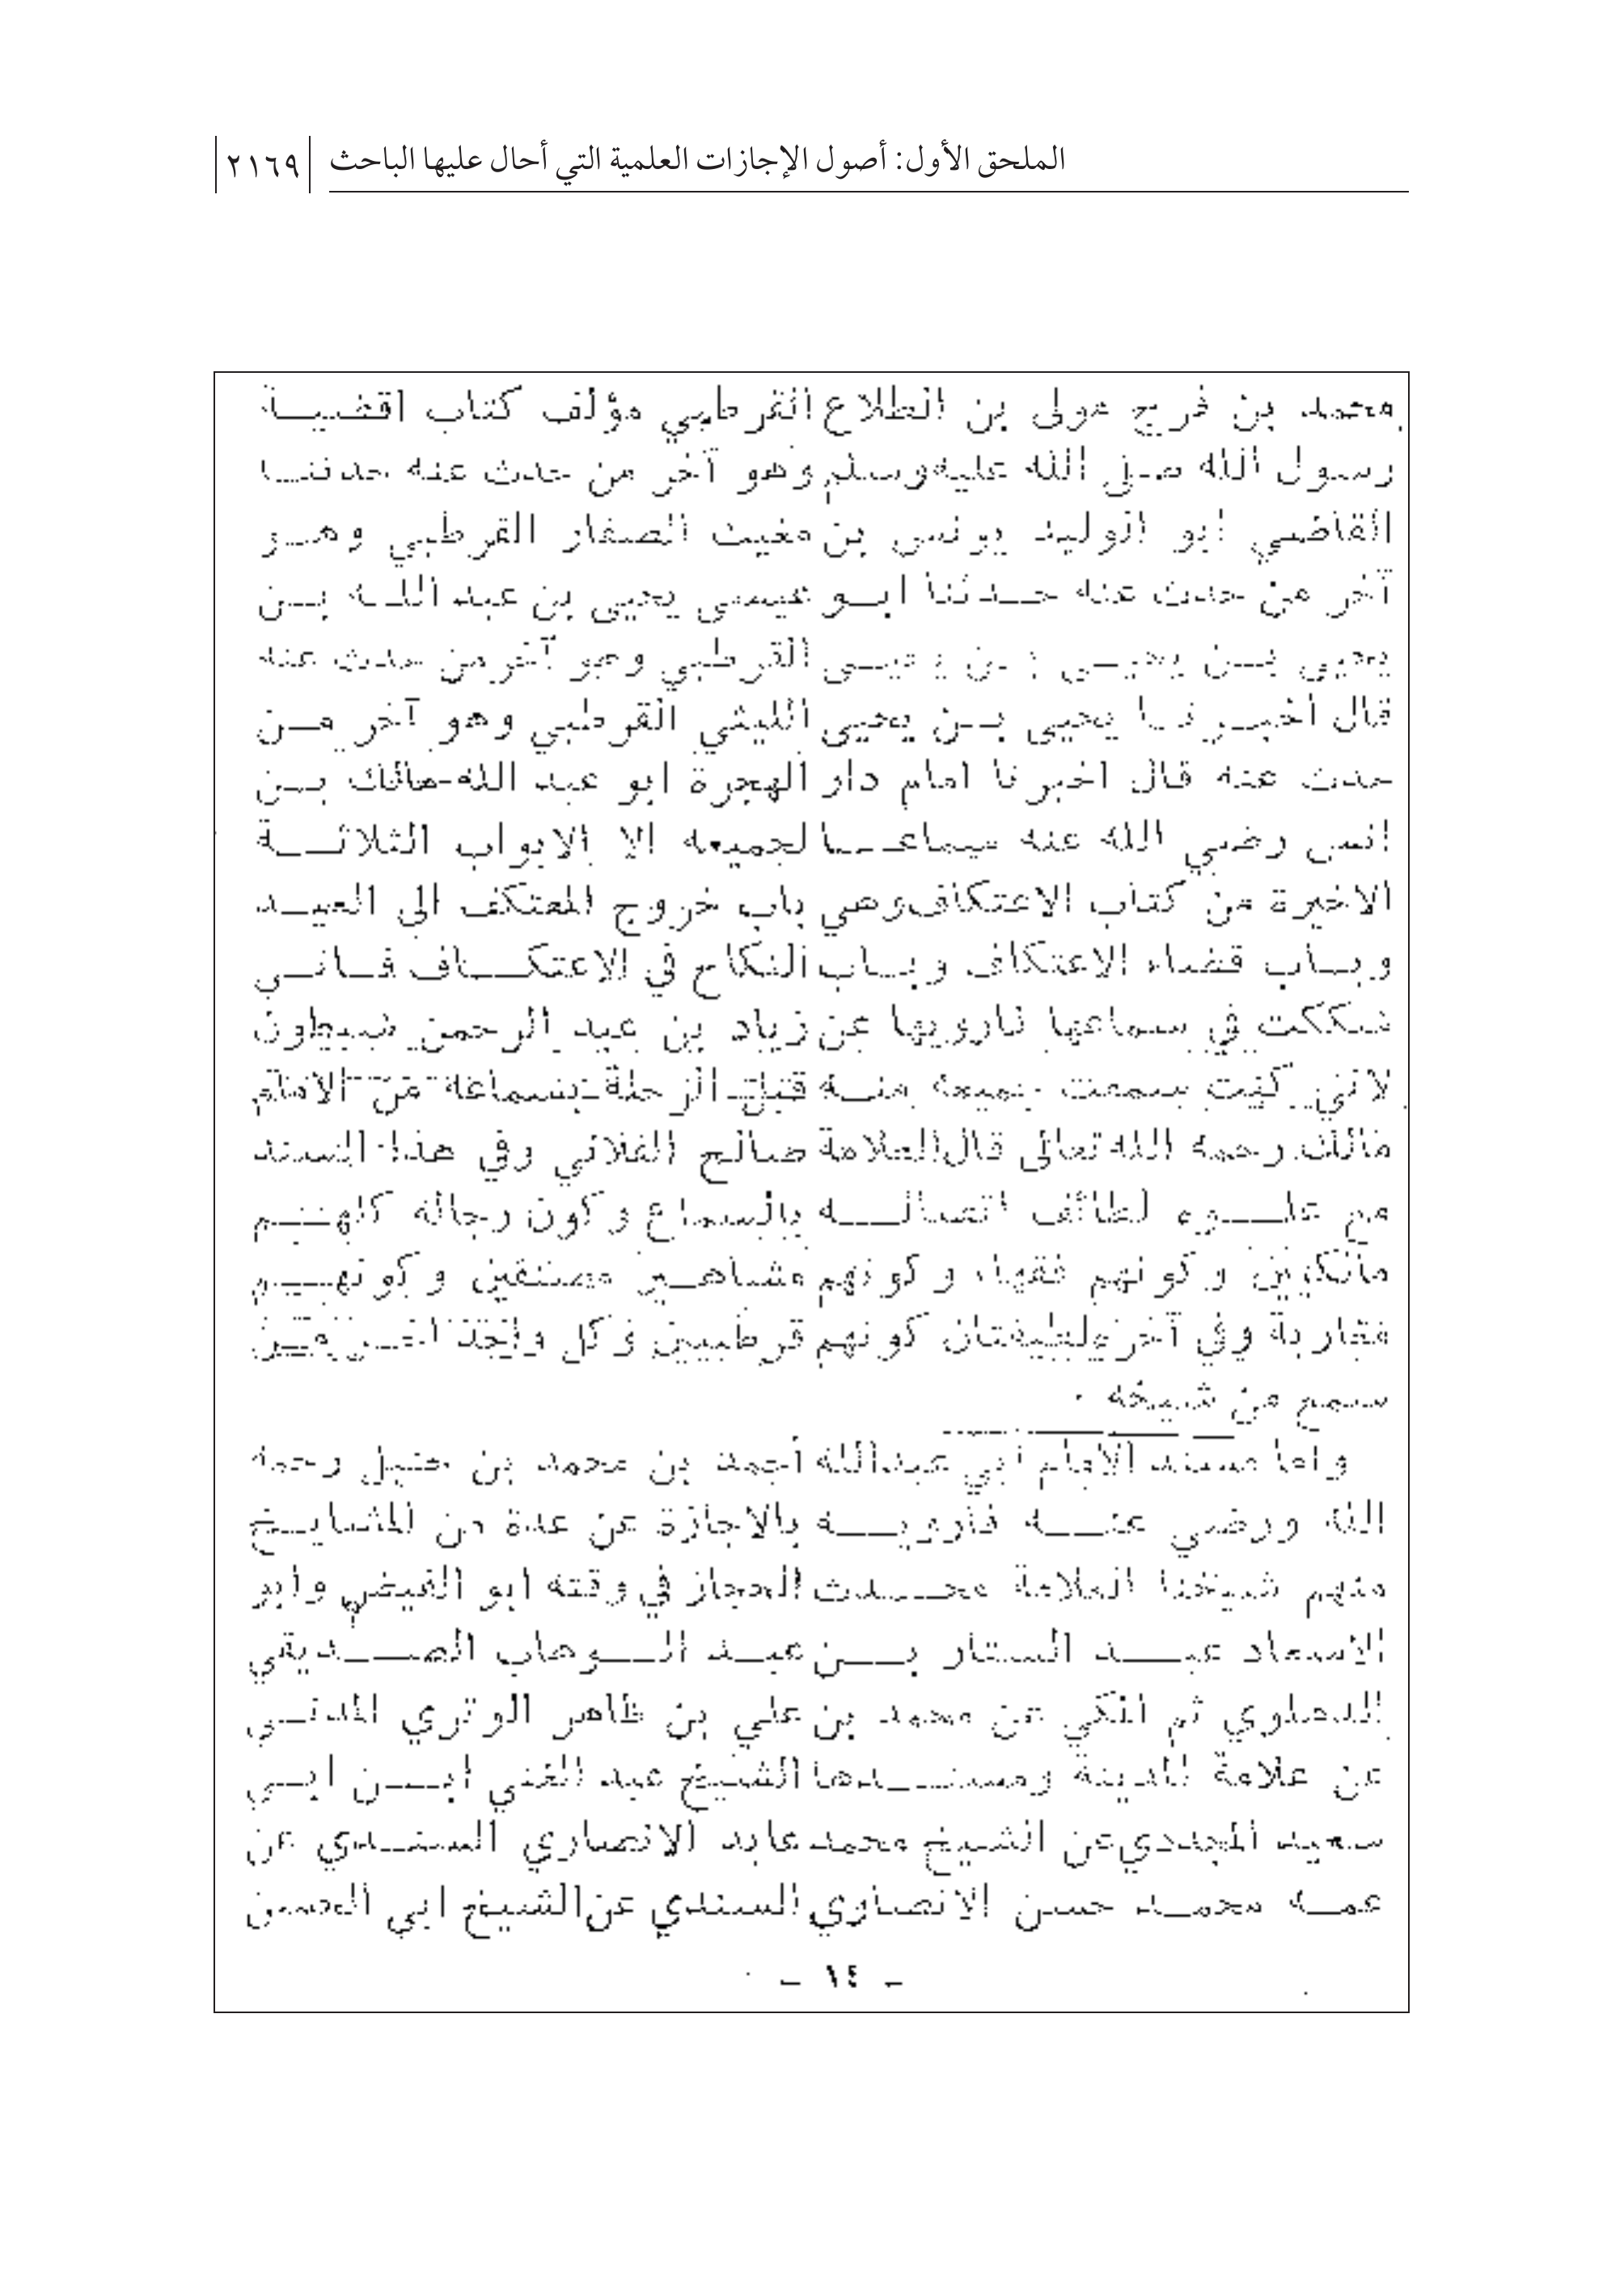 الملحق الأول: أصول الإجازات العلمية التي أحال عليها الباحث
٢١٦٩
محمد بن فرج مولى بن الطلاع القرطبي مؤلف كتاب اقضية
رسول الله صلى الله عليه وسلم وهو آخر من حدث عنه حدثنا
القاضي ابو الوليد يونس بن مغيث الصفار القرطبي وهو
آخر من حدث عنه حدثنا ابو عيسى يحيى بن عبد الله بن
يحيى بن يحيى بن يحيى القرطبي وهو آخر من حدث عنه
قال أخبرنا يحيى بن يحيى الليثي القرطبي وهو آخر من
حدث عنه قال اخبرنا امام دار الهجرة ابو عبد الله مالك بن
انس رضي الله عنه سماعا لجميعه إلا الابواب الثلاثة
الاخيرة من كتاب الاعتكاف وهي باب خروج المعتكف الى العيد
وباب قضاء الاعتكاف وباب النكاح في الاعتكاف فاني
شككت في سماعها فارويها عن زياد بن عبد الرحمن شبطون
لاني كنت سمعت جميعه منه قبل الرحلة بسماعه من الامام
مالك رحمه الله تعالى قال العلامة صالح الفلاني وفي هذا السند
مع علوه لطائف اتصاله بالسماع وكون رجاله كلهم
مالكيين وكونهم فقهاء وكونهم مشاهير مصنفين وكونهم
مغاربة وفي آخره لطيفتان كونهم قرطبيين وكل واحد آخر من
سمع من شيخه .
واما مسند الامام أبي عبدالله أحمد بن محمد بن حنبل رحمه
الله ورضي عنه فأرويه بالاجازة عن عدة من المشايخ
منهم شيخنا العلامة محدث الحجاز في وقته ابو الفيض وابو
الاسعاد عبد الستار بن عبد الوهاب الصديقي
الدهلوي ثم المكي عن محمد بن علي بن ظاهر الوتري المدني
عن علامة المدينة ومسندها الشيخ عبد الغني ابن ابي
سعيد المجددي عن الشيخ محمد عابد الانصاري السندي عن
عمه محمد حسن الانصاري السندي عن الشيخ ابي الحسن
- ١٤ -